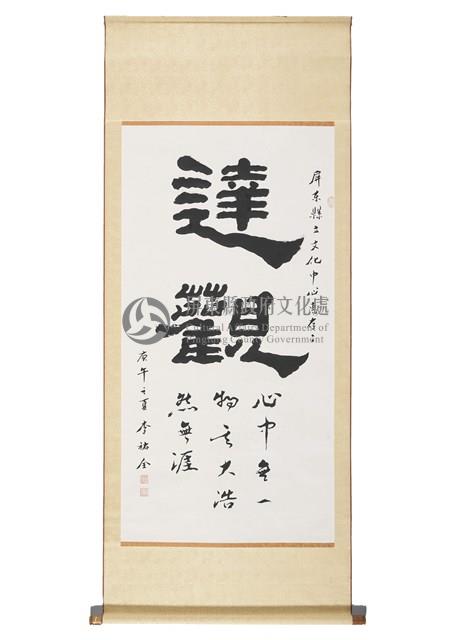 屏東縣立文化中心
達觀
心中無一
物其大浩
然無涯
庚午之夏 李祐全
屏東縣政府文化處
Cultural Affairs Department of
Pingtung County Government